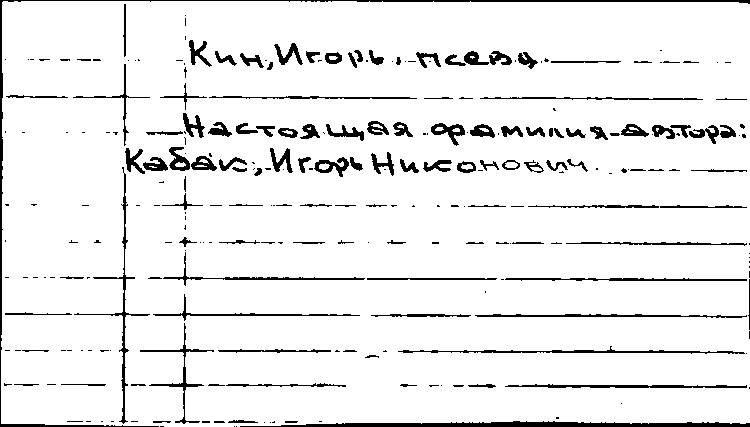 Кин, Игорь, псевд.
Настоящая фамилия автора:
Кабак, Игорь Никонович.